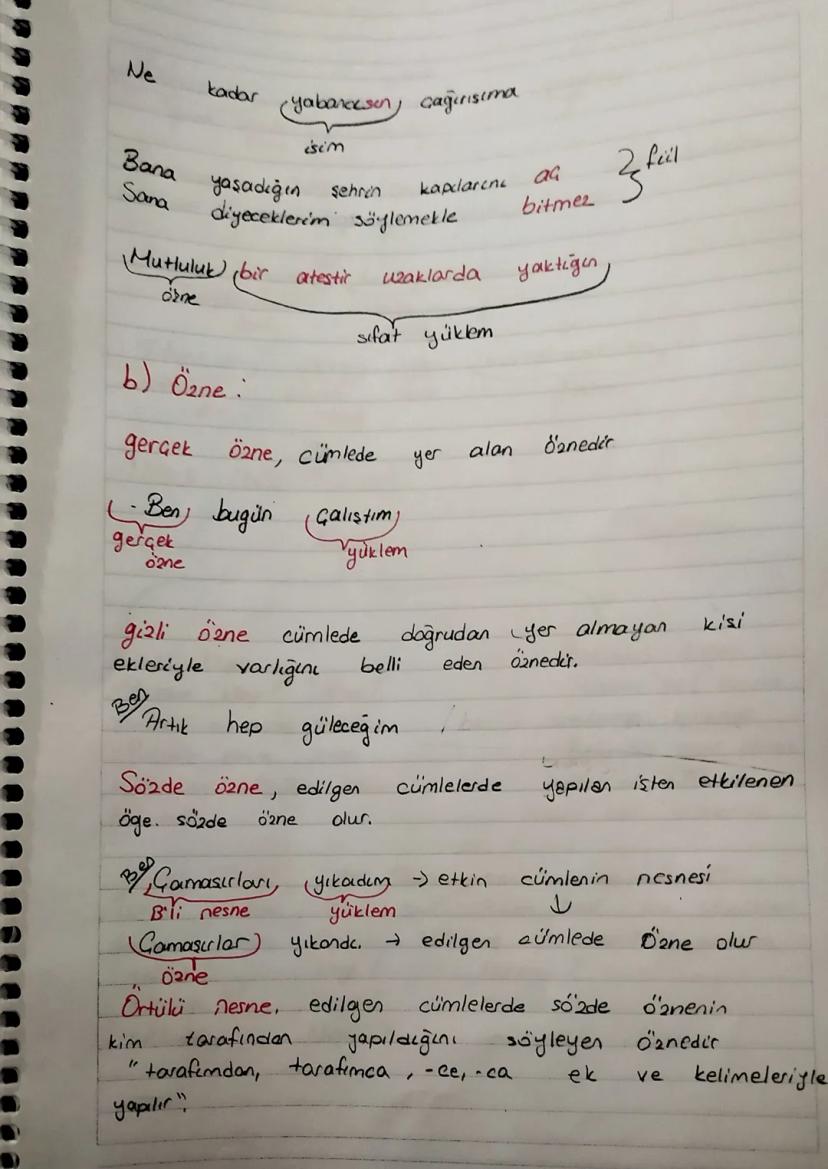 Ne kadar yabancısın çağırışıma
isim
Bana yaşadığın şehrin kapılarını aç
Sana diyeceklerim söylemekle bitmez
2 fiil
Mutluluk bir ateştir uzaklarda yaktığın
özne
sıfat yüklem
b) Özne :
gerçek özne, cümlede yer alan öznedir
- Ben bugün çalıştım
gerçek özne
yüklem
gizli özne cümlede doğrudan yer almayan kişi
ekleriyle varlığını belli eden öznedir.
Ben/ Artık hep güleceğim
Sözde özne, edilgen cümlelerde yapılan işten etkilenen
öge. sözde özne olur.
Ben/ Çamaşırları yıkadım → etkin cümlenin nesnesi
B'li nesne yüklem ↓
Çamaşırlar yıkandı. → edilgen cümlede özne olur
özne
Örtülü nesne, edilgen cümlelerde sözde öznenin
kim tarafından yapıldığını söyleyen öznedir
"tarafımdan, tarafımca, -ce, -ca ek ve kelimeleriyle
yapılır".